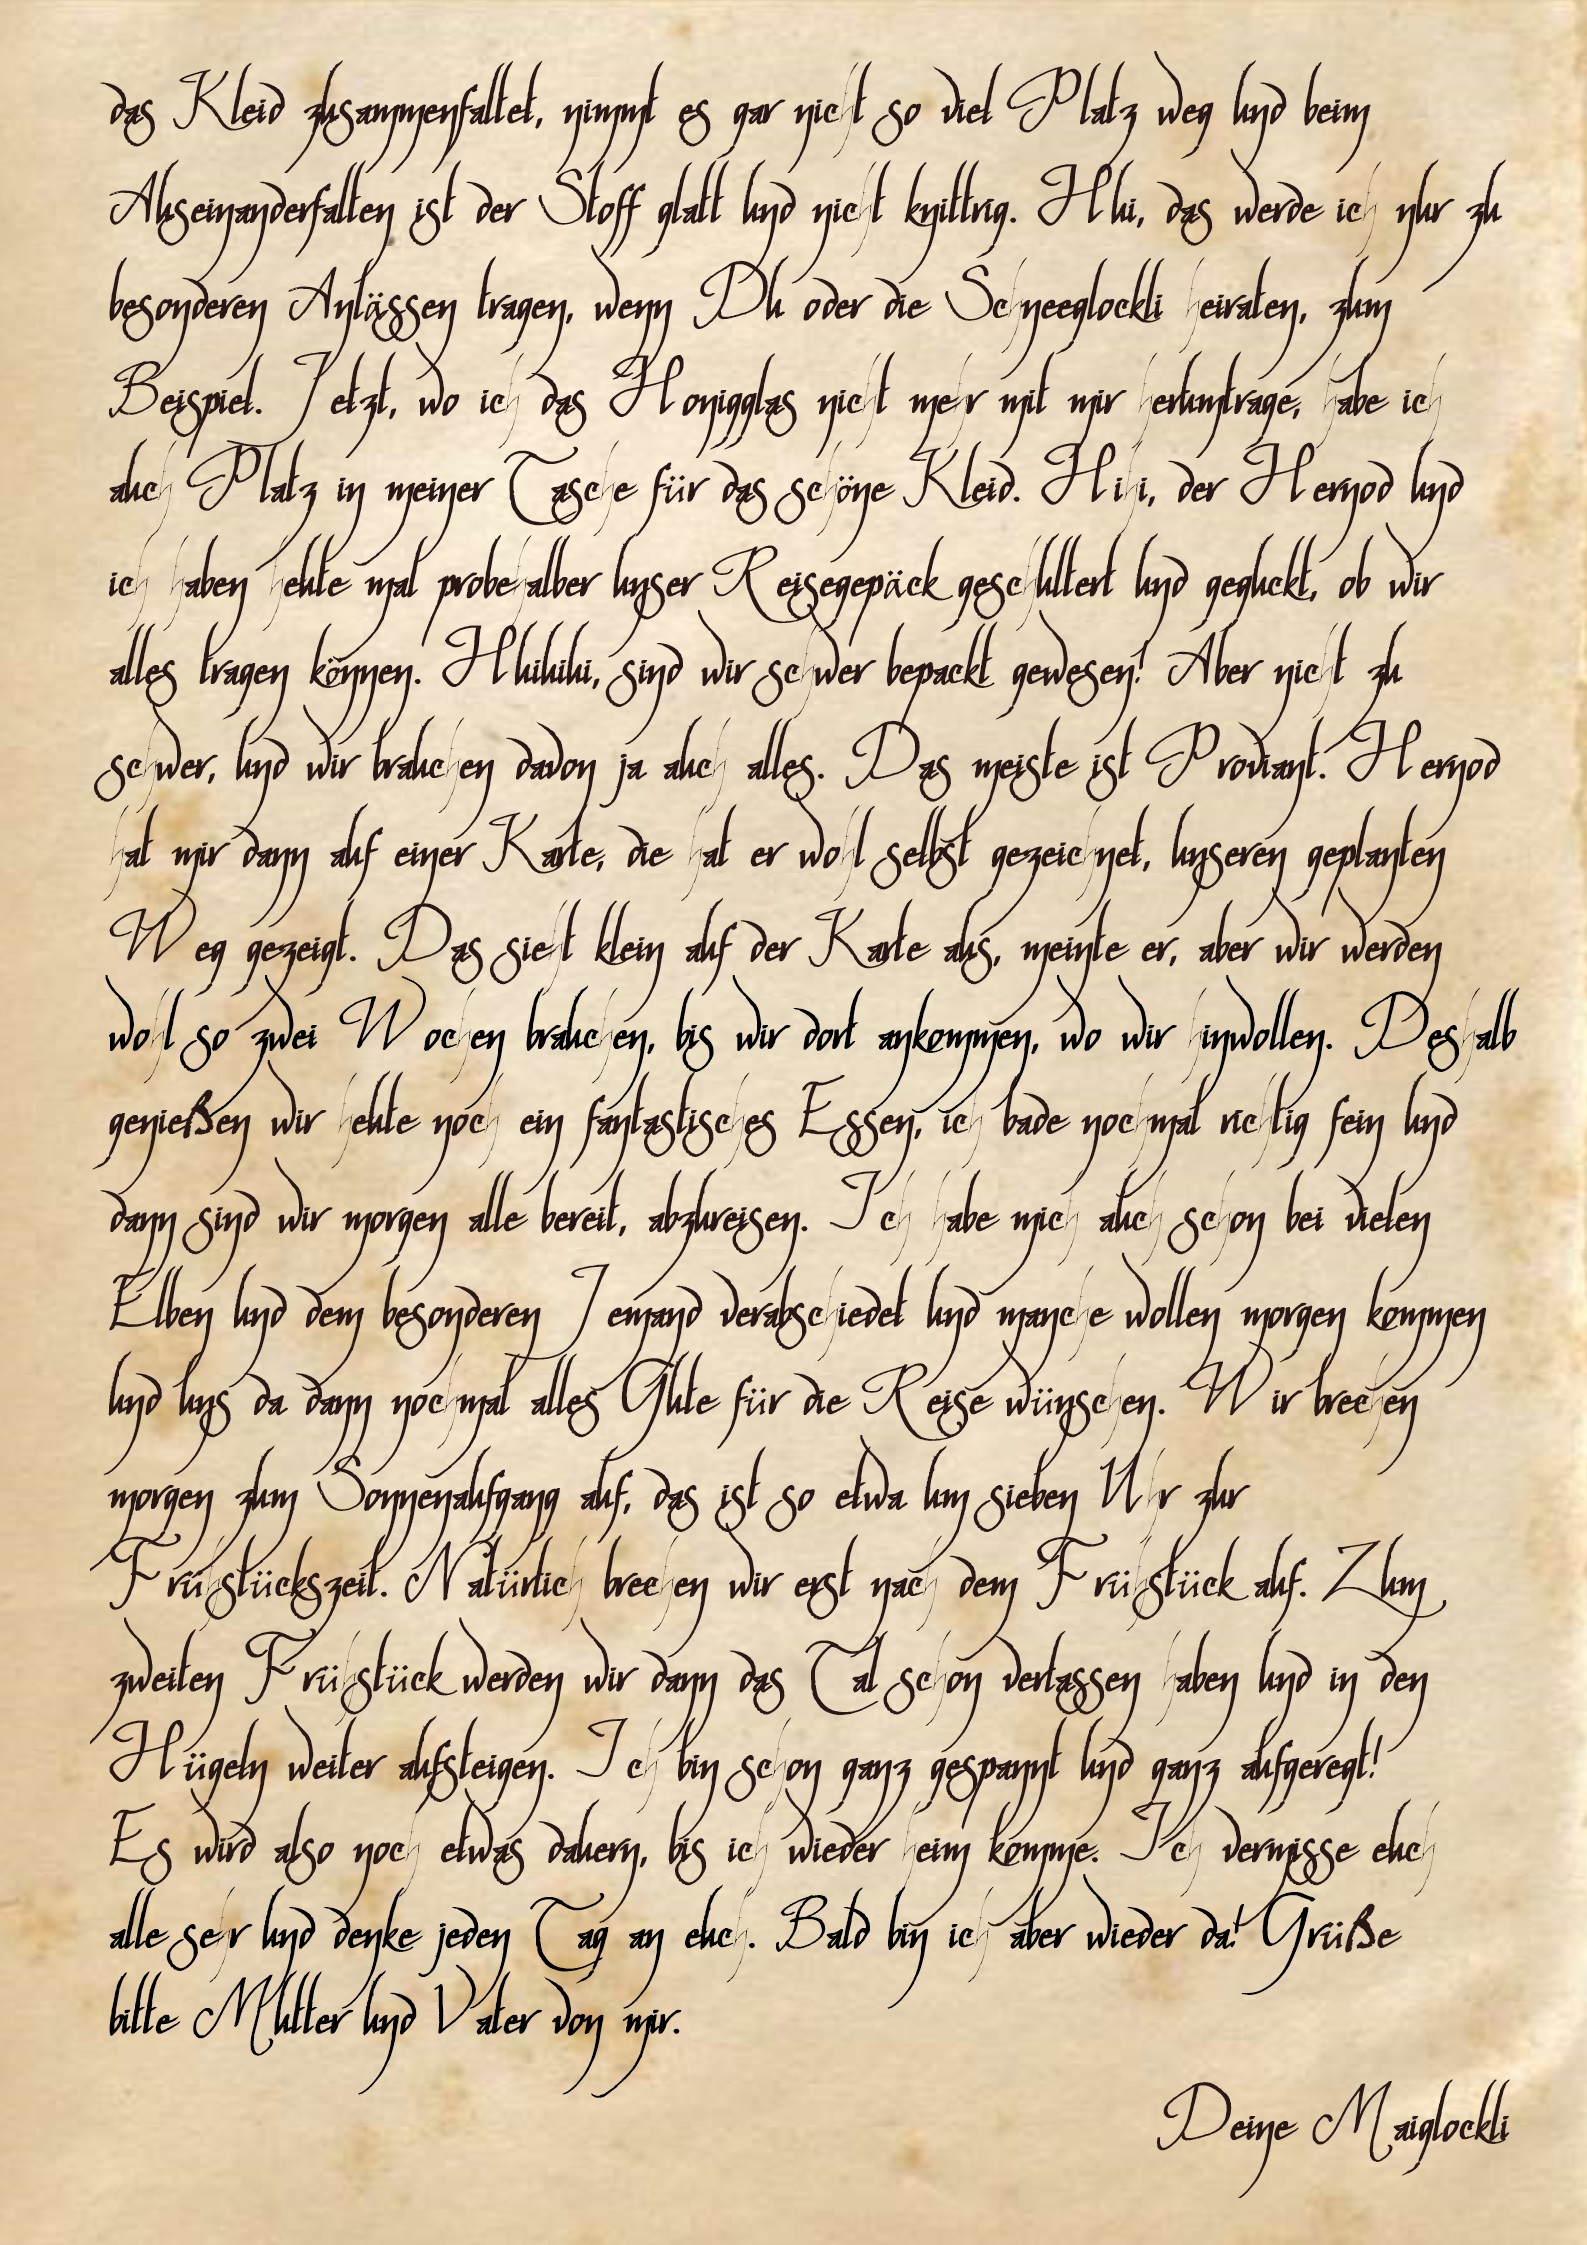 das Kleid zusammenfaltet, nimmt es gar nicht so viel Platz weg und beim
Auseinanderfalten ist der Stoff glatt und nicht knittrig. Hui, das werde ich nur zu
besonderen Anlässen tragen, wenn Du oder die Schneeglockli heiraten, zum
Beispiel. Jetzt, wo ich das Honigglas nicht mehr mit mir herumtrage, habe ich
auch Platz in meiner Tasche für das schöne Kleid. Hihi, der Hernod und
ich haben heute mal probehalber unser Reisegepäck geschultert und geguckt, ob wir
alles tragen können. Huihuhu, sind wir schwer bepackt gewesen! Aber nicht zu
schwer, und wir brauchen davon ja auch alles. Das meiste ist Proviant. Hernod
hat mir dann auf einer Karte, die hat er wohl selbst gezeichnet, unseren geplanten
Weg gezeigt. Das sieht klein auf der Karte aus, meinte er, aber wir werden
wohl so zwei Wochen brauchen, bis wir dort ankommen, wo wir hinwollen. Deshalb
genießen wir heute noch ein fantastisches Essen, ich bade nochmal richtig fein und
dann sind wir morgen alle bereit, abzureisen. Ich habe mich auch schon bei vielen
Elben und dem besonderen Jemand verabschiedet und manche wollen morgen kommen
und uns da dann nochmal alles Gute für die Reise wünschen. Wir brechen
morgen zum Sonnenaufgang auf, das ist so etwa um sieben Uhr zur
Frühstückszeit. Natürlich brechen wir erst nach dem Frühstück auf. Zum
zweiten Frühstück werden wir dann das Tal schon verlassen haben und in den
Hügeln weiter aufsteigen. Ich bin schon ganz gespannt und ganz aufgeregt!
Es wird also noch etwas dauern, bis ich wieder heim komme. Ich vermisse euch
alle sehr und denke jeden Tag an euch. Bald bin ich aber wieder da! Grüße
bitte Mutter und Vater von mir.
Deine Maiglockli